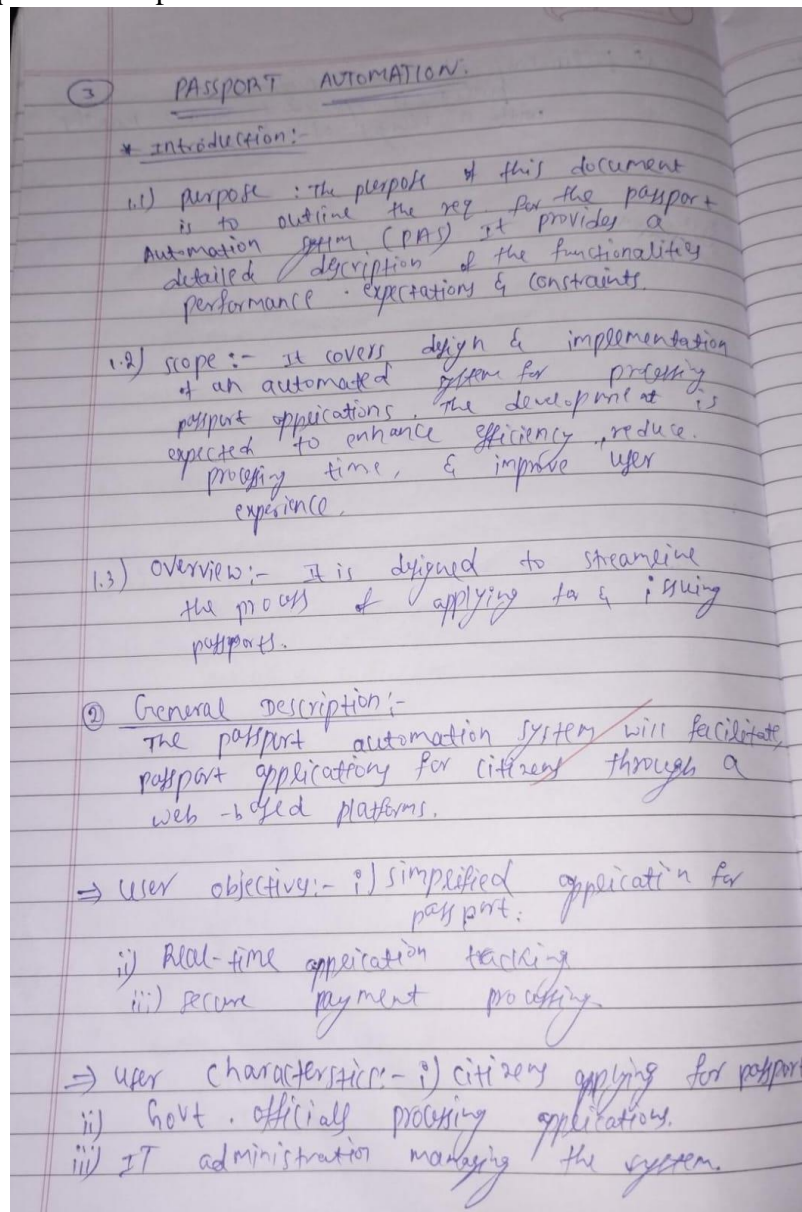 ③ PASSPORT AUTOMATION.
* Introduction:-
1.1) purpose : The purpose of this document
is to outline the req for the passport
Automation system (PAS) It provides a
detailed description of the functionalities
performance . expectations & constraints.
1.2) scope :- It covers design & implementation
of an automated system for processing
passport applications. The development is
expected to enhance efficiency, reduce.
processing time, & improve user
experience.
1.3) overview :- It is designed to streamline
the process of applying for & issuing
passports.
② General Description :-
The passport automation system will facilitate,
passport applications for citizens through a
web-based platforms.
⇒ user objectives:- i) simplified application for
passport.
ii) Real-time application tracking
iii) secure payment processing.
⇒ user characterstics:- i) citizens applying for passport
ii) Govt. officials processing applications.
iii) IT administration managing the system.